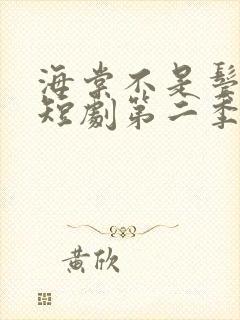 海棠不是
短劇第二季
黃欣